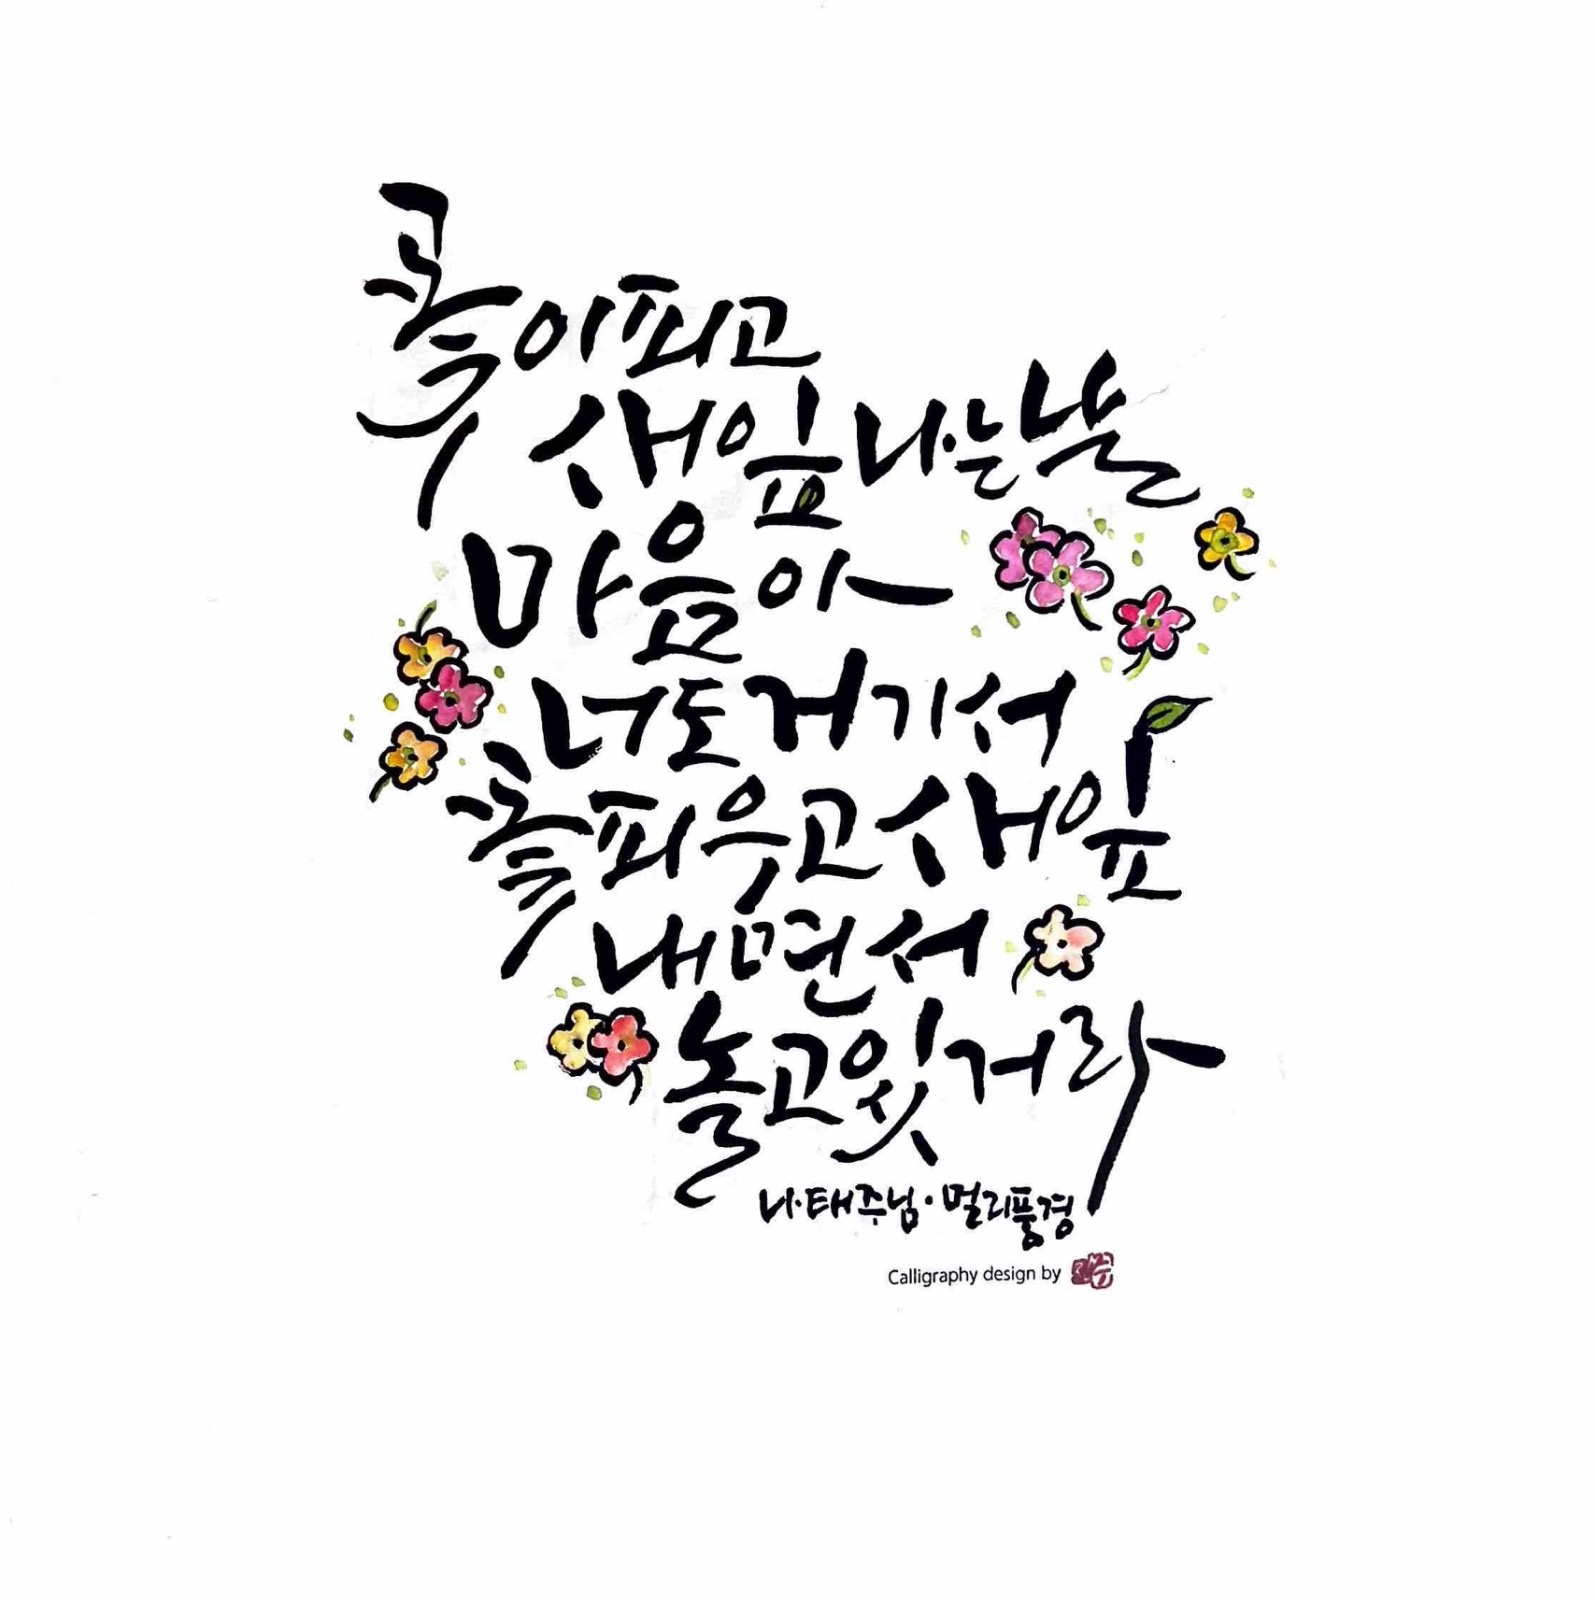 꽃이피고
새잎나는날
마음아
너도거기서
꽃피우고새잎
내면서
놀고있거라
나태주님·멀리풍경
Calligraphy design by